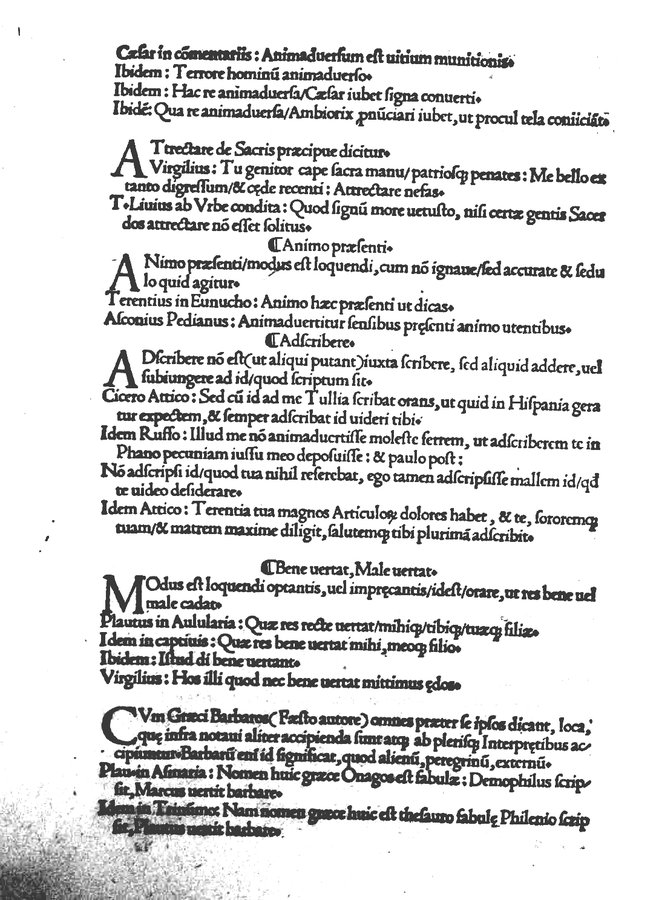 Cæsar in cõmentariis: Animaduersum est uitium munitionis.
Ibidem: Terrore hominũ animaduerso.
Ibidem: Hac re animaduersa/Cæsar iubet signa conuerti.
Ibidẽ: Qua re animaduersa/Ambiorix ꝓnũciari iubet, ut procul tela coniiciãt.
ATtrectare de Sacris præcipue dicitur.
Virgilius: Tu genitor cape sacra manu/patriosq; penates: Me bello ex
tanto digressum/& cęde recenti: Attrectare nefas.
T. Liuius ab Vrbe condita: Quod signũ more uetusto, nisi certæ gentis Sacer
dos attrectare nõ esset solitus.
¶Animo præsenti.
ANimo præsenti/modus est loquendi, cum nõ ignaue/sed accurate & sedu
lo quid agitur.
Terentius in Eunucho: Animo hæc præsenti ut dicas.
Asconius Pedianus: Animaduertitur sensibus pręsenti animo utentibus.
¶Adscribere.
ADscribere nõ est(ut aliqui putant)iuxta scribere, sed aliquid addere, uel
subiungere ad id/quod scriptum sit.
Cicero Attico: Sed cũ id ad me Tullia scribat orans, ut quid in Hispania gera
tur expectem, & semper adscribat id uideri tibi.
Idem Ruffo: Illud me nõ animaduertisse moleste ferrem, ut adscriberem te in
Phano pecuniam iussu meo deposuisse: & paulo post:
Nõ adscripsi id/quod tua nihil referebat, ego tamen adscripsisse mallem id/qd
te uideo desiderare.
Idem Attico: Terentia tua magnos Articuloꝝ dolores habet, & te, sororemq;
tuam/& matrem maxime diligit, salutemq; tibi plurimã adscribit.
¶Bene uertat, Male uertat.
MOdus est loquendi optantis, uel impręcantis/idest/orare, ut res bene uel
male cadat.
Plautus in Aulularia: Quæ res recte uertat/mihiq;/tibiq;/tuæq; filiæ.
Idem in captiuis: Quæ res bene uertat mihi, meoq; filio.
Ibidem: Istud di bene uertant.
Virgilius: Hos illi quod nec bene uertat mittimus ędos.
CVm Græci Barbaros(Fæsto autore) omnes præter se ipsos dicant, loca,
quę infra notaui aliter accipienda sunt atq; ab plerisq; Interpretibus ac/
cipiuntur. Barbarũ eni id significat, quod alienũ, peregrinũ, externũ.
Plau. in Asinaria: Nomen huic græce Onagos est fabulæ: Demophilus scrip/
sit, Marcus uertit barbare.
Idem in Trinũmo: Nam nomen græce huic est thesauro fabulę Philenio scrip
sit, Plautus uertit barbare.